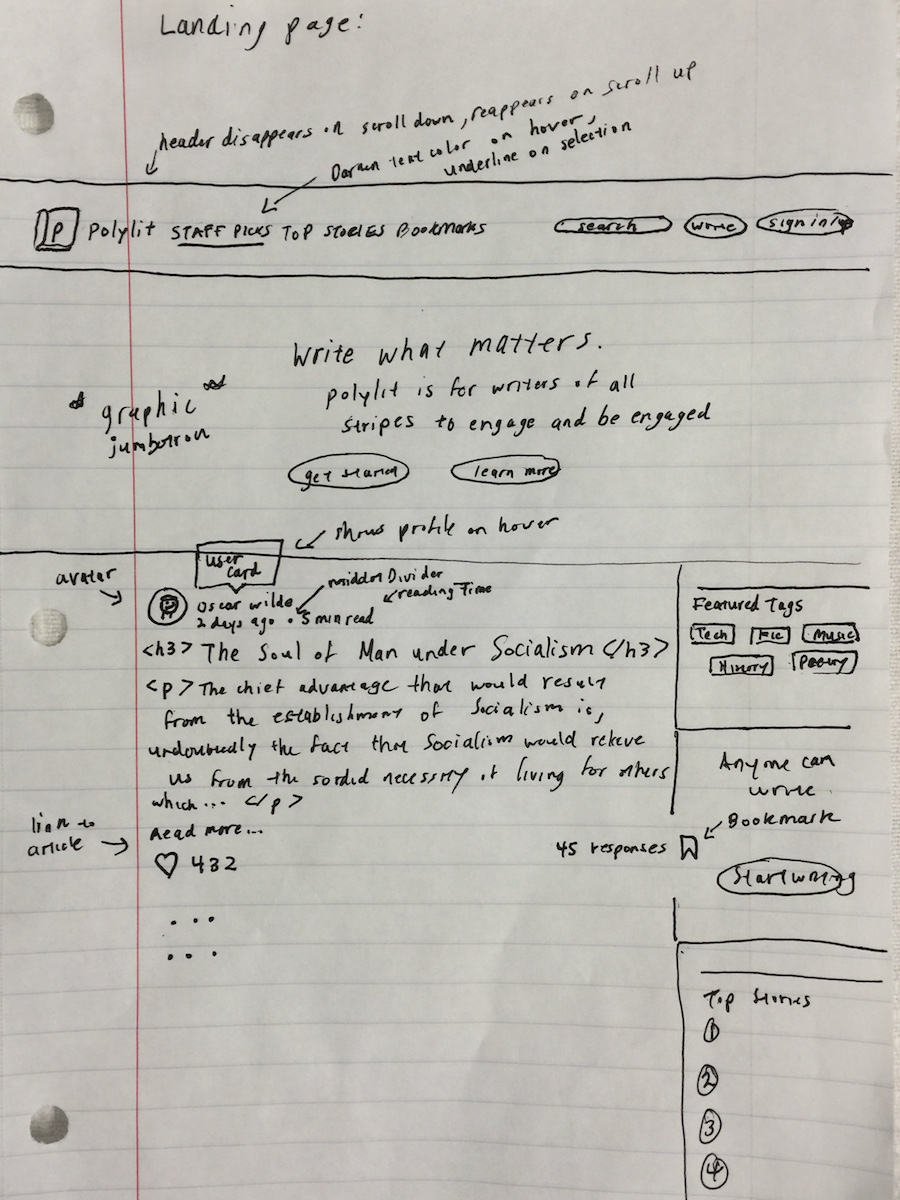 Landing page:
header disappears on scroll down, reappears on scroll up
Darken text color on hover,
underline on selection
P Polylit STAFF PICKS TOP STORIES Bookmarks search write sign in/up
Write what matters.
polylit is for writers of all
stripes to engage and be engaged
"graphic"
jumbotron
get started learn more
shows profile on hover
user
card
avatar
middot Divider
reading Time
Oscar wilde
2 days ago · 5 min read
<h3> The Soul of Man under Socialism </h3>
<p> The chief advantage that would result
from the establishment of Socialism is,
undoubtedly the fact that Socialism would relieve
us from the sordid necessity of living for others
which... </p>
link to
article
Read more...
♡ 432
45 responses
Bookmark
...
...
Featured Tags
Tech Fic Music
History Poetry
Anyone can
write.
Start writing
Top Stories
1
2
3
4